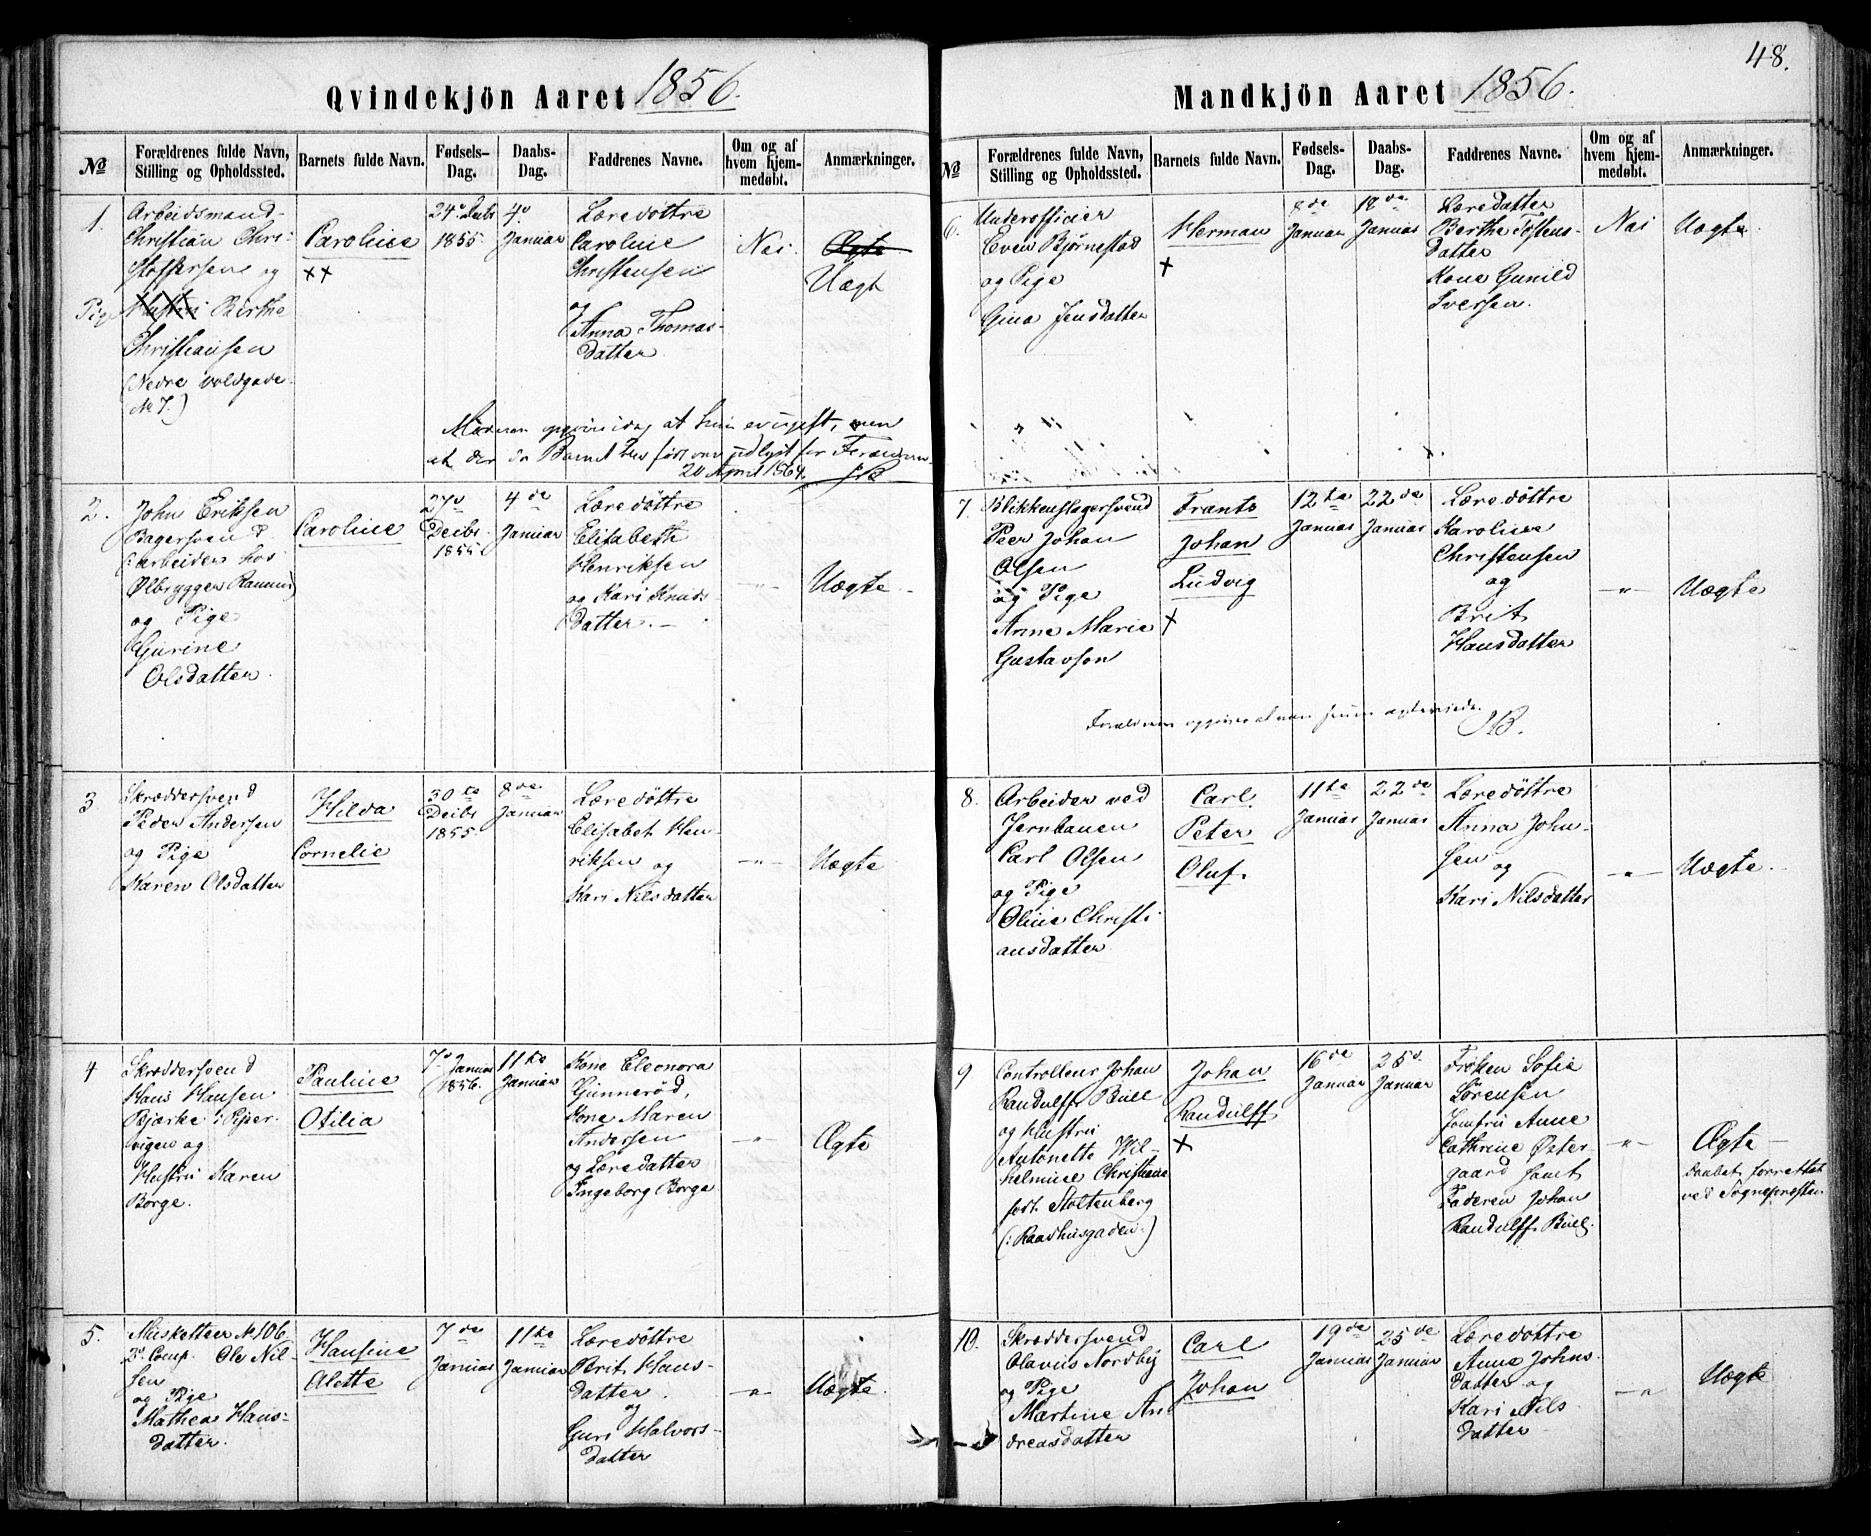 48.
Qvindekjön Aaret 1856.
No
Forældrenes fulde Navn,
Stilling og Opholdssted.
Barnets fulde Navn.
Fødsels-
Dag.
Daabs-
Dag.
Faddrenes Navne.
Om og af
hvem hjem-
medøbt.
Anmærkninger.
1.
Arbeidsmand
Christian Chri-
stoffersen og
Pige Hustru Berthe
Christiansen
(Nedre Voldgade
No 7.)
Caroline
××
24de Decbr
1855.
4de
Januar
Læredøttre
Caroline
Christensen
og
Anna Thomas-
datter
Nei.
Ægte
Uægt
Moderen opgiver idag at hun er ugift, men
at der da Barnet blev født var udlyst for
20 April 1864.
2.
John Eriksen
Bagersvend
(: arbeider hos
Ølbrygger )
og Pige
Gurine
Olsdatter.
Caroline
27de
Decbr
1855.
4de
Januar
Læredøttre
Elisabeth
Henriksen
og Kari Knuds-
datter. -
-"-
Uægte
3
Skræddersvend
Peder Andersen
og Pige
Karen Olsdatter
Hilda
Cornelie
30te
Decbr
1855.
8de
Januar
Læredøttre
Elisabet Hen-
riksen og
Kari Nilsdatter
-"-
Uægte
4
Skræddersvend
Hans Hansen
Bjerke i Piper-
vigen og
Hustru Karen
Borge.
Pauline
Otilia
7de Januar
1856.
11te
Januar
Kone Eleonora
Gunnerød,
Kone Maren
Andersen
og Læredatter
Ingeborg Borge
-"-
Ægte
5.
Musketteer No 106
Comp. Ole Nil-
sen
og Pige
Mathea Hans-
datter.
Hansine
Alette
7de
Januar
11te
Januar
Læredøttre
Brit Hans-
datter.
og
Guri Halvors-
datter
-"-
Uægte
Mandkjön Aaret 1856.
No
Forældrenes fulde Navn,
Stilling og Opholdssted.
Barnets fulde Navn.
Fødsels-
Dag.
Daabs-
Dag.
Faddrenes Navne.
Om og af
hvem hjem-
medøbt.
Anmærkninger.
6.
Underofficier
Even Bjørnestad
og Pige
Gina Jensdatter
Herman
×
8de
Januar
18de
Januar
Læredatter
Berthe Tostens-
datter
Kone Gunild
Iversen.
Nei
Uægte
7.
Blikkenslagersvend
Peer Johan
Olsen
og Pige
Anne Marie
Gustavson
Frants
Johan
Ludvig
×
12te
Januar
22de
Januar
Læredøttre
Karoline
Christensen
og
Brit
Hansdatter
-"-
Uægte
Forældrene opgives at være senere ægteviede.
8.
Arbeider ved
Jernbanen
Carl Olsen
og Pige
Oline Christi-
ansdatter
Carl
Peter
Oluf.
11te
Januar
22de
Januar
Læredøttre
Anna John-
sen og
Kari Nilsdatter
-"-
Uægte
9
Controlleur Johan
Randulff Bull
og Hustru
Antonette Wil-
helmine Christiane
født Stoltenberg
(: Raadhusgaden.)
Johan
Randulff
×
16de
Januar
25de
Januar
Frøken Sofie
Sørensen
Jomfru Anne
Cathrine Øster-
gaard samt
Faderen Johan
Randulff Bull.
-"-
Ægte
Daabet forrettet
ved Sogneprosten
10.
Skræddersvend
Olavus Nordby
og Pige
Martine An-
dreasdatter
Carl
Johan
19de
Januar
25de
Januar
Læredøttre
Anne Johns-
datter og
Kari Nils
datter
-"-
Uægte